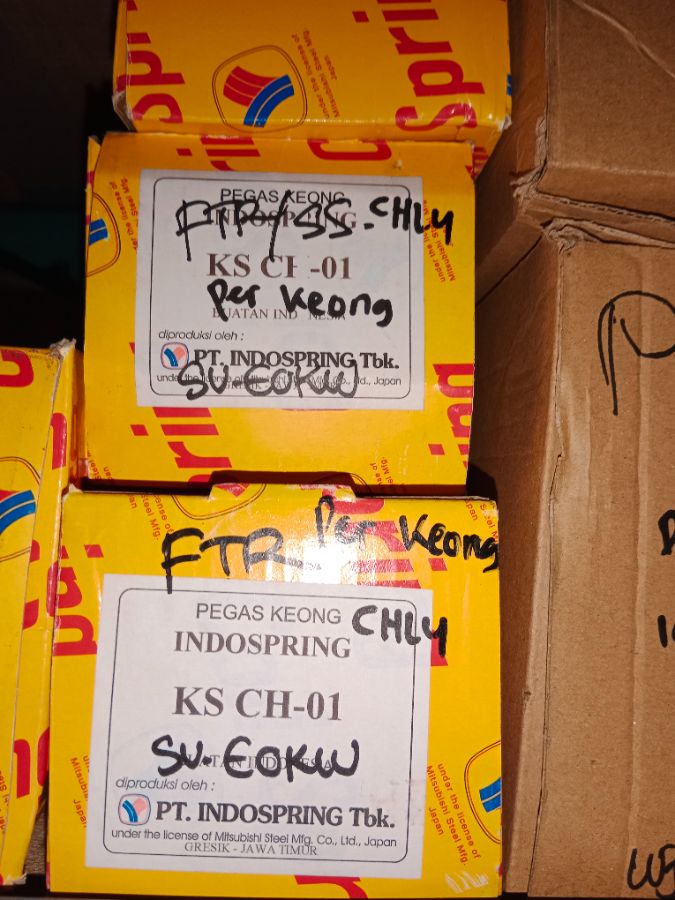 under the license of
Mitsubishi Steel Mfg.
Japan
Spri
PEGAS KEONG
INDOSPRING
FTR/SS-CHLY
KS CH-01
Per Keong
BUATAN INDONESIA
diproduksi oleh :
PT. INDOSPRING Tbk.
under the license of Mitsubishi Steel Mfg. Co., Ltd., Japan
SU-EOKW
FTR Per Keong
PEGAS KEONG
CHLY
INDOSPRING
KS CH-01
SU-EOKW
diproduksi oleh :
PT. INDOSPRING Tbk.
under the license of Mitsubishi Steel Mfg. Co., Ltd., Japan
GRESIK - JAWA TIMUR
under the license of
Mitsubishi Steel Mfg.
Japan
P